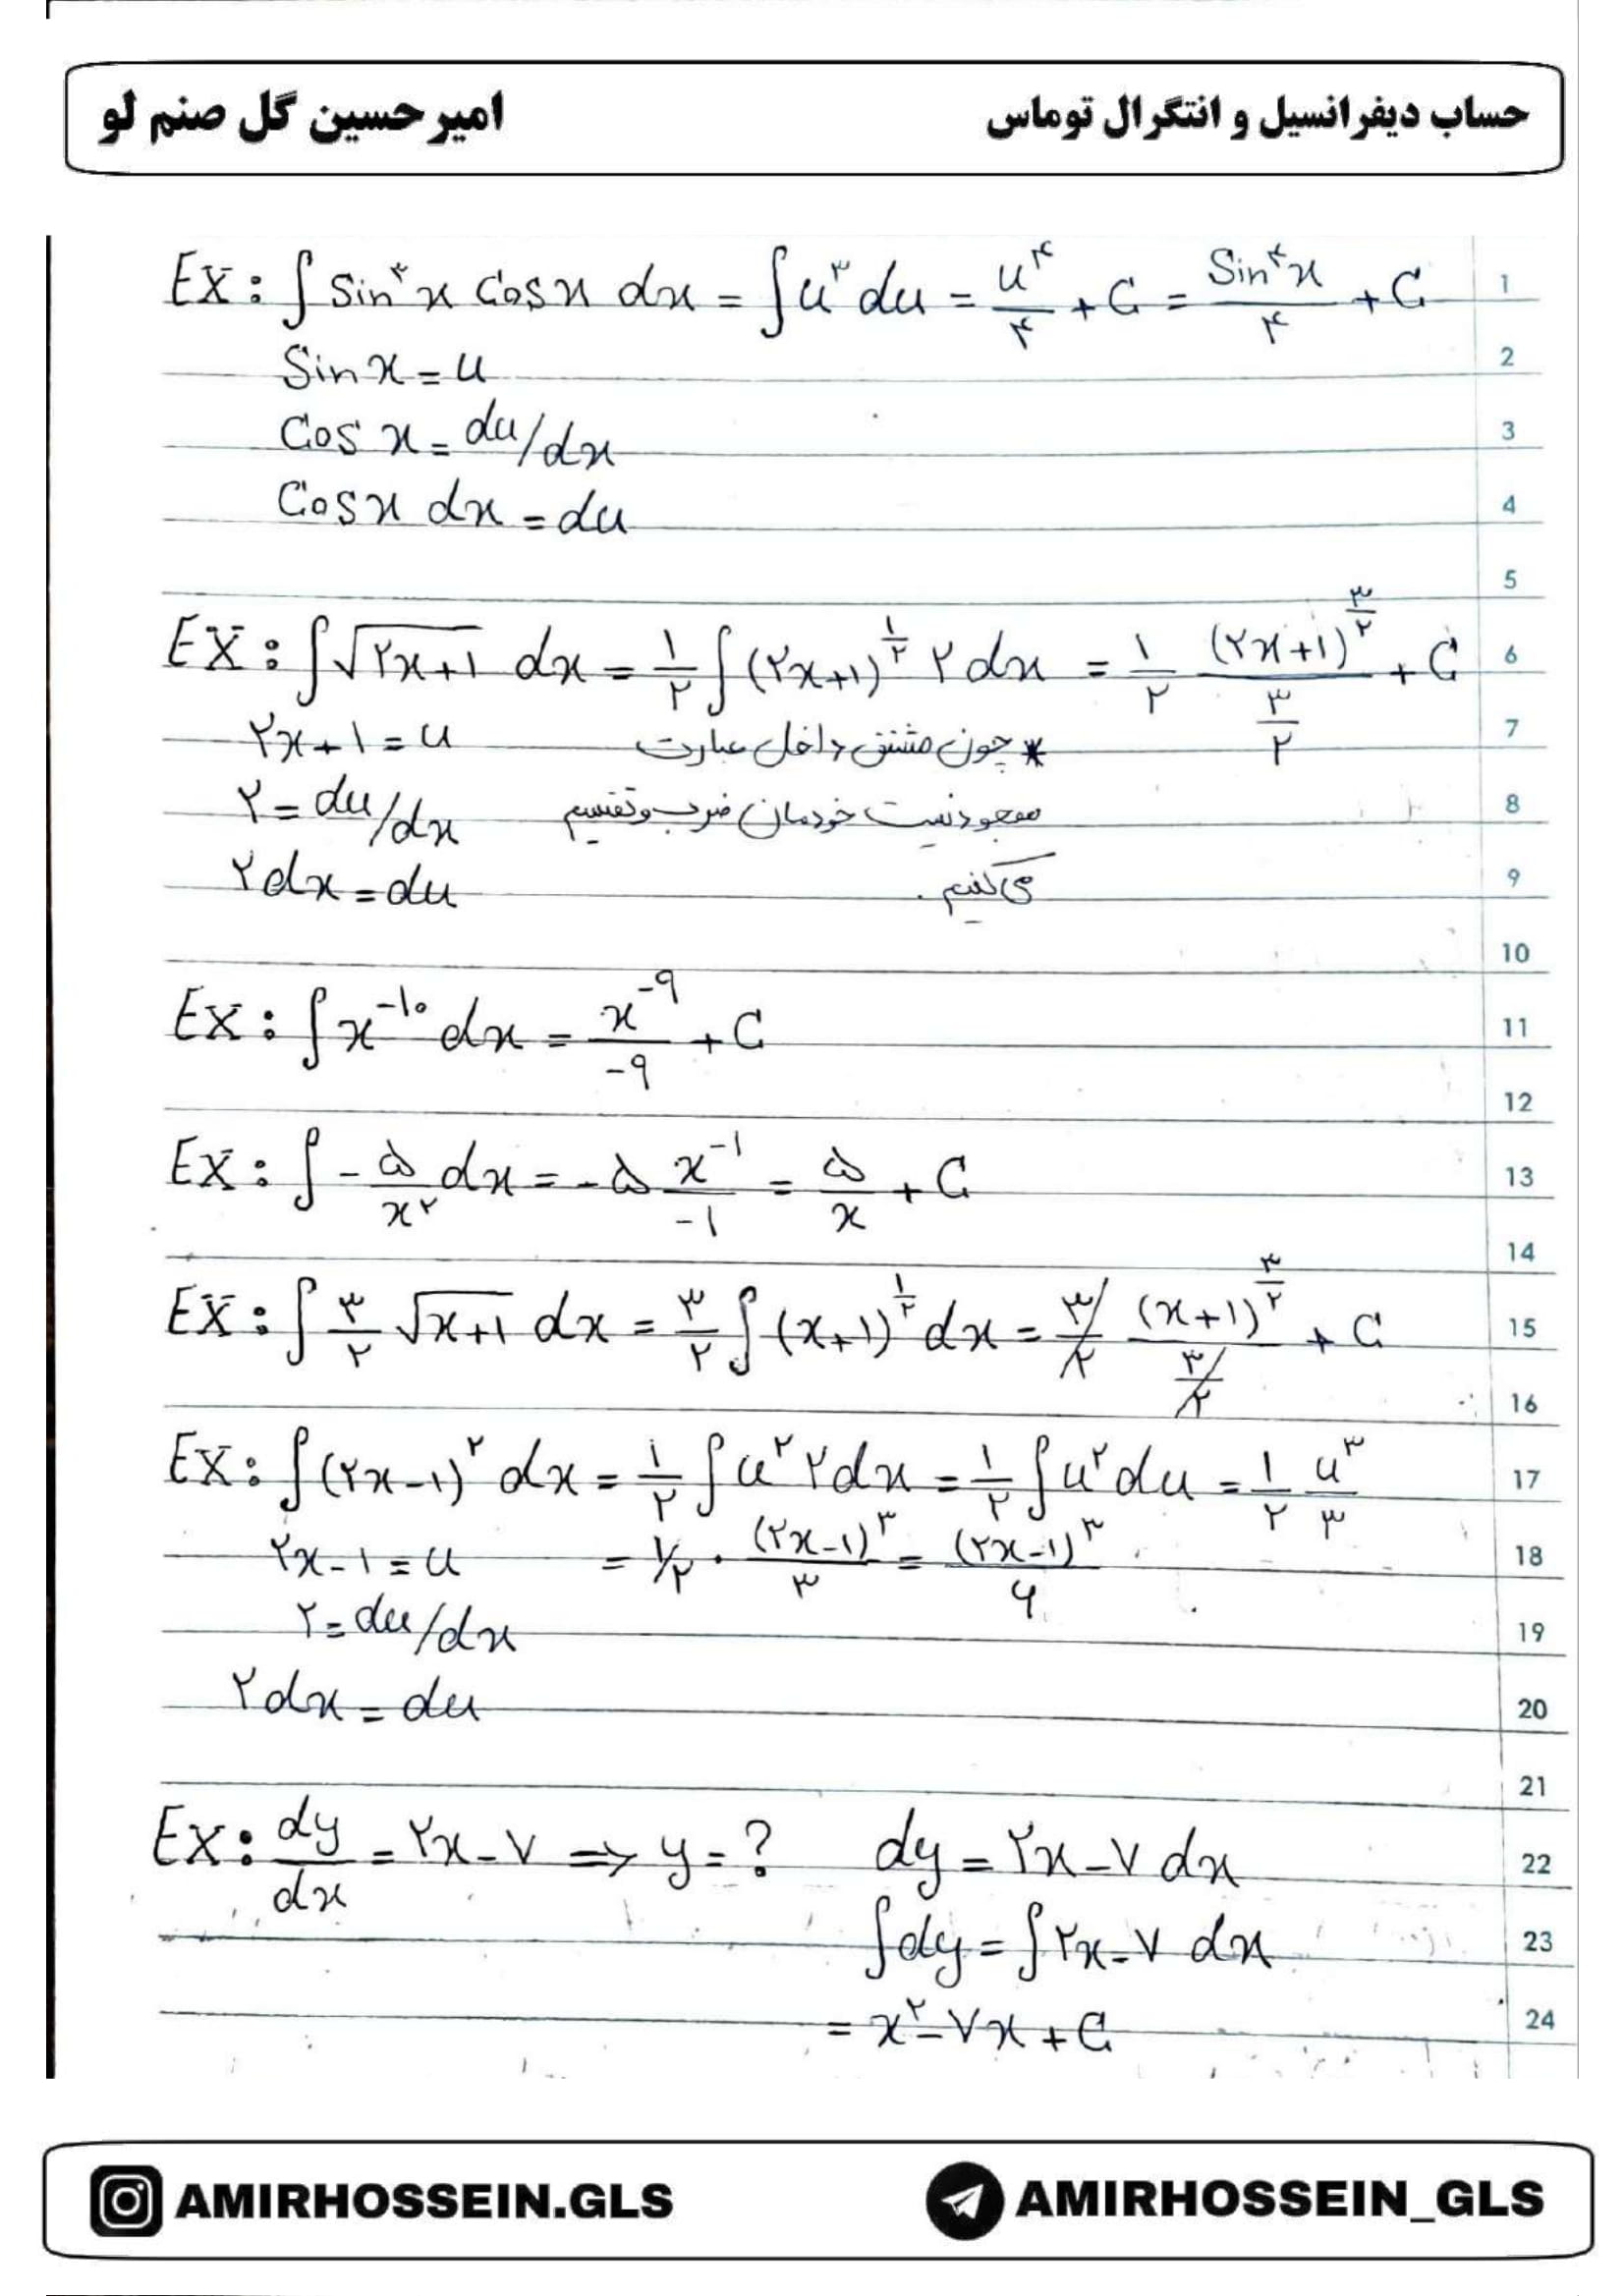 حساب دیفرانسیل و انتگرال توماس امیرحسین گل صنم لو
EX: ∫ Sin^۴ x Cos x dx = ∫ u^۳ du = u^۴/۴ + C = Sin^۴ x/۴ + C 1
Sin x = u 2
Cos x = du/dx 3
Cos x dx = du 4
5
EX: ∫ √(۲x+۱) dx = ۱/۲ ∫ (۲x+۱)^(۱/۲) ۲ dx = ۱/۲ (۲x+۱)^(۳/۲)/(۳/۲) + C 6
۲x+۱ = u * چون مشتق داخل عبارت 7
۲ = du/dx موجود نیست خودمان ضرب و تقسیم 8
۲dx = du می کنیم. 9
10
EX: ∫ x^-۱۰ dx = x^-۹/-۹ + C 11
12
EX: ∫ -۵/x^۲ dx = -۵ x^-۱/-۱ = ۵/x + C 13
14
EX: ∫ ۳/۲ √(x+۱) dx = ۳/۲ ∫ (x+۱)^(۱/۲) dx = ۳/۲ (x+۱)^(۳/۲)/(۳/۲) + C 15
16
EX: ∫ (۲x-۱)^۲ dx = ۱/۲ ∫ u^۲ ۲dx = ۱/۲ ∫ u^۲ du = ۱/۲ u^۳/۳ 17
۲x-۱ = u = ۱/۲ . (۲x-۱)^۳/۳ = (۲x-۱)^۳/۶ 18
۲ = du/dx 19
۲dx = du 20
21
EX: dy/dx = ۲x-۷ => y = ? dy = ۲x-۷ dx 22
∫dy = ∫۲x-۷ dx 23
= x^۲-۷x + C 24
AMIRHOSSEIN.GLS AMIRHOSSEIN_GLS